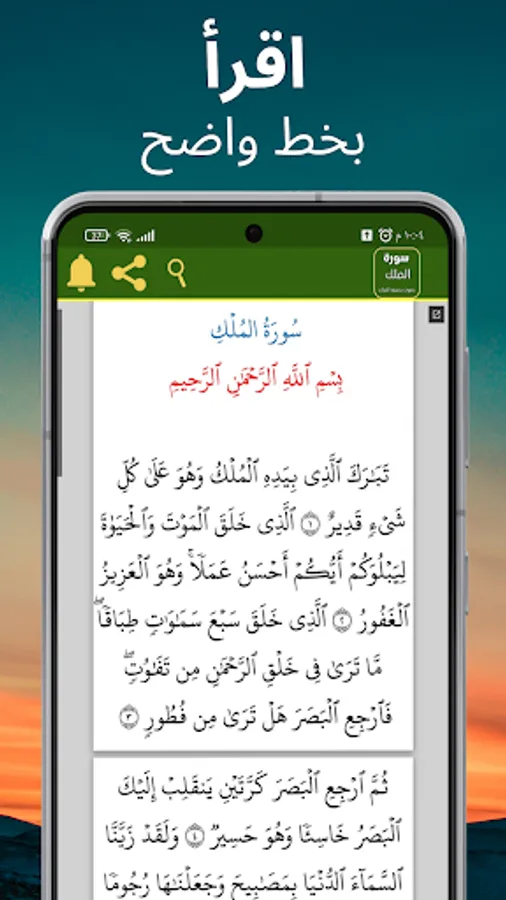 اقرأ
بخط واضح
١٠:٠٤ م
سورة
الملك
سُورَةُ المُلْكِ
بِسْمِ ٱللَّهِ ٱلرَّحْمَٰنِ ٱلرَّحِيمِ
تَبَٰرَكَ ٱلَّذِى بِيَدِهِ ٱلْمُلْكُ وَهُوَ عَلَىٰ كُلِّ
شَىْءٍ قَدِيرٌ ١ ٱلَّذِى خَلَقَ ٱلْمَوْتَ وَٱلْحَيَوٰةَ
لِيَبْلُوَكُمْ أَيُّكُمْ أَحْسَنُ عَمَلًا ۚ وَهُوَ ٱلْعَزِيزُ
ٱلْغَفُورُ ٢ ٱلَّذِى خَلَقَ سَبْعَ سَمَٰوَٰتٍ طِبَاقًا ۖ
مَّا تَرَىٰ فِى خَلْقِ ٱلرَّحْمَٰنِ مِن تَفَٰوُتٍ ۖ
فَٱرْجِعِ ٱلْبَصَرَ هَلْ تَرَىٰ مِن فُطُورٍ ٣
ثُمَّ ٱرْجِعِ ٱلْبَصَرَ كَرَّتَيْنِ يَنقَلِبْ إِلَيْكَ
ٱلْبَصَرُ خَاسِئًا وَهُوَ حَسِيرٌ ٤ وَلَقَدْ زَيَّنَّا
ٱلسَّمَآءَ ٱلدُّنْيَا بِمَصَٰبِيحَ وَجَعَلْنَٰهَا رُجُومًا